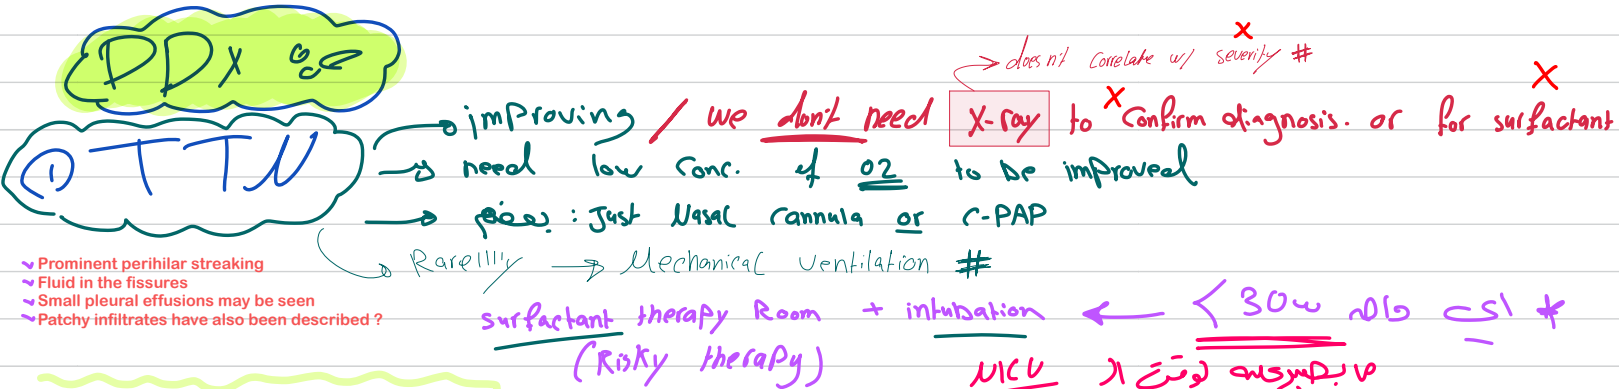 DDx
doesn't correlate w/ severity #
① TTN
improving / we don't need X-ray to confirm diagnosis. or for surfactant
need low conc. of O2 to be improved
: Just Nasal cannula or C-PAP
Rarellly → Mechanical ventilation #
Prominent perihilar streaking
Fluid in the fissures
Small pleural effusions may be seen
Patchy infiltrates have also been described ?
* اي حالة < 30w ← intubation + surfactant therapy Room
(Risky therapy)
NICU